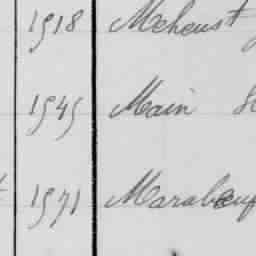 1918 Meheust
1949 Main
1971 Marabœuf